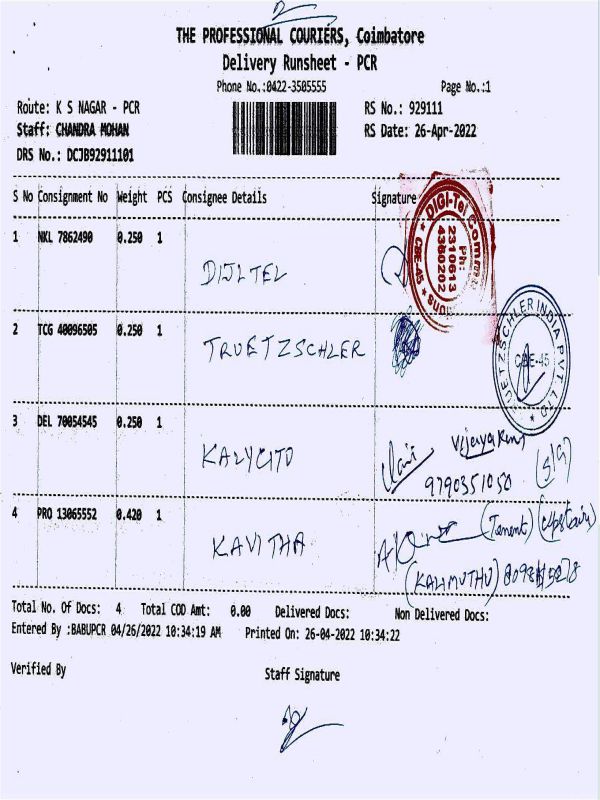 THE PROFESSIONAL COURIERS, Coimbatore
Delivery Runsheet - PCR
Phone No.:0422-3505555
Page No.:1
Route: K S NAGAR - PCR
RS No.: 929111
Staff: CHANDRA MOHAN
RS Date: 26-Apr-2022
DRS No.: DCJB92911101
S No Consignment No Weight PCS Consignee Details Signature
1 NKL 7862490 0.250 1
DIJLTEL
DIGI-Tel Comm
Ph:
2310613
4360202
CBE-45
2 TCG 40096505 0.250 1
TRUETZSCHLER
TRUETZSCHLER INDIA PVT. LTD
CBE-45
3 DEL 70054545 0.250 1
KALYCITO
9790351050
4 PRO 13065552 0.420 1
KAVITHA
(Tenent) (Upstair)
(KALIMUTHU)
Total No. Of Docs: 4 Total COD Amt: 0.00 Delivered Docs: Non Delivered Docs:
Entered By :BABUPCR 04/26/2022 10:34:19 AM Printed On: 26-04-2022 10:34:22
Verified By Staff Signature